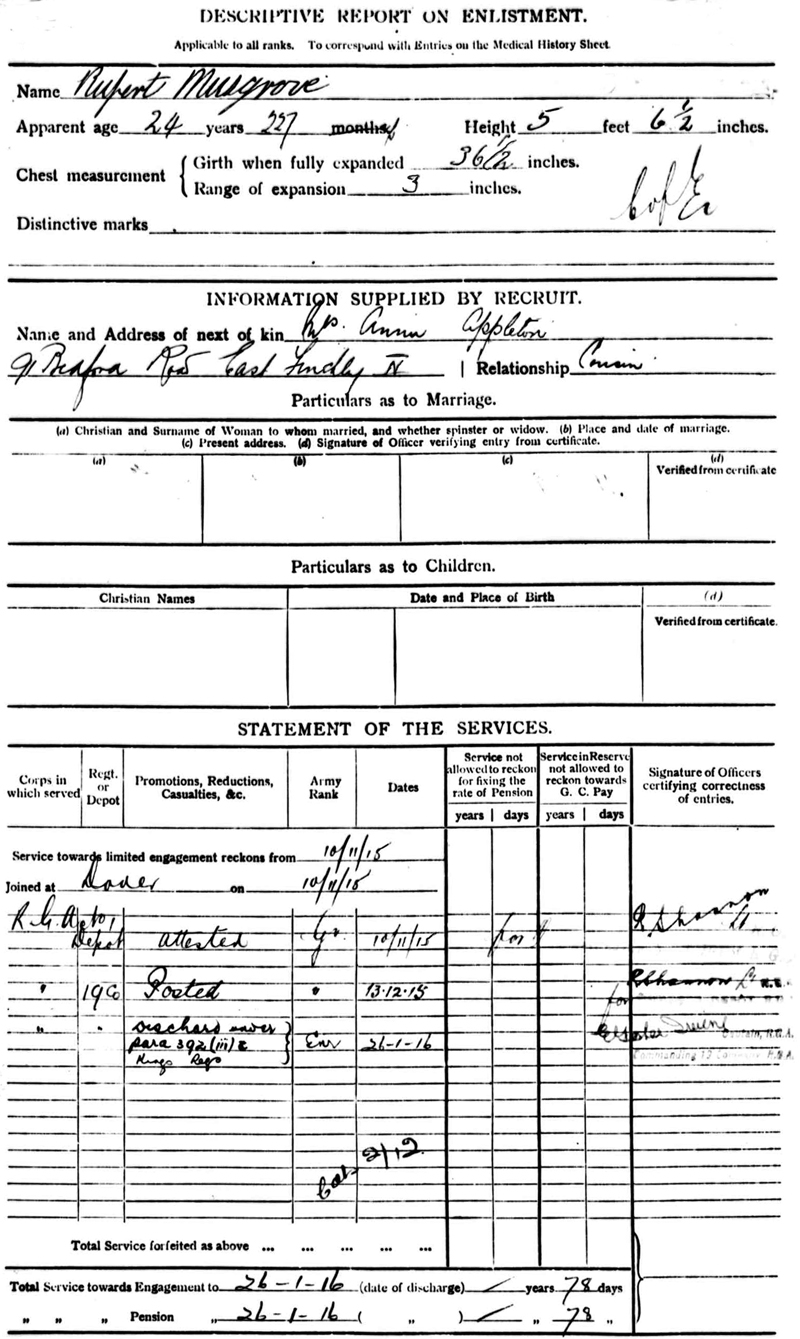 DESCRIPTIVE REPORT ON ENLISTMENT.
Applicable to all ranks. To correspond with Entries on the Medical History Sheet.
Name Rupert Musgrove
Apparent age 24 years 227 months Height 5 feet 6 1/2 inches.
Chest measurement { Girth when fully expanded 36 1/2 inches.
Range of expansion 3 inches.
C of E
Distinctive marks
INFORMATION SUPPLIED BY RECRUIT.
Name and Address of next of kin Mrs. Annie Appleton
91 Bedford Row East Finchley N | Relationship Cousin
Particulars as to Marriage.
(a) Christian and Surname of Woman to whom married, and whether spinster or widow. (b) Place and date of marriage.
(c) Present address. (d) Signature of Officer verifying entry from certificate.
(a) (b) (c) (d)
Verified from certificate
Particulars as to Children.
Christian Names Date and Place of Birth (d)
Verified from certificate.
STATEMENT OF THE SERVICES.
Corps in which served Regt. or Depot Promotions, Reductions, Casualties, &c. Army Rank Dates Service not allowed to reckon for fixing the rate of Pension Service in Reserve not allowed to reckon towards G. C. Pay Signature of Officers certifying correctness of entries.
years days years days
Service towards limited engagement reckons from 10/11/15
Joined at Dover on 10/11/15
R.G.A. No 1 Depot Attested Gr 10/11/15 for R Shannon Lt
" 19 Co Posted " 13.12.15 for R Shannon Lt
" " Discharged under para 392 (iii) c Kings Regs } Gnr 26-1-16 Captain, R.G.A.
Commanding 19 Company R.G.A.
2/12
Total Service forfeited as above ... ... ... ... ...
Total Service towards Engagement to 26-1-16 (date of discharge) / years 78 days
" " " Pension " 26-1-16 ( " ) / " 78 "